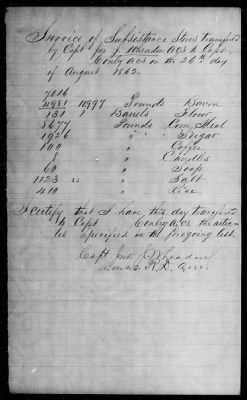 Invoice of Subsistance Stores transferred
by Capt Jno J. Wheadon ACS to Capt
Conly ACS on the 26th day
of August 1862.
7016
4981 11997 Pounds Bacon
131 Barrels Flour
8677 Pounds Corn Meal
1926 " Sugar
100 " Coffee
8 " Candles
60 " Soap
1123 " Salt
410 " Rice
I certify that I have this day transferred
to Capt Conly ACS the artic-
les specified in the foregoing list
Capt Jno J Wheadon